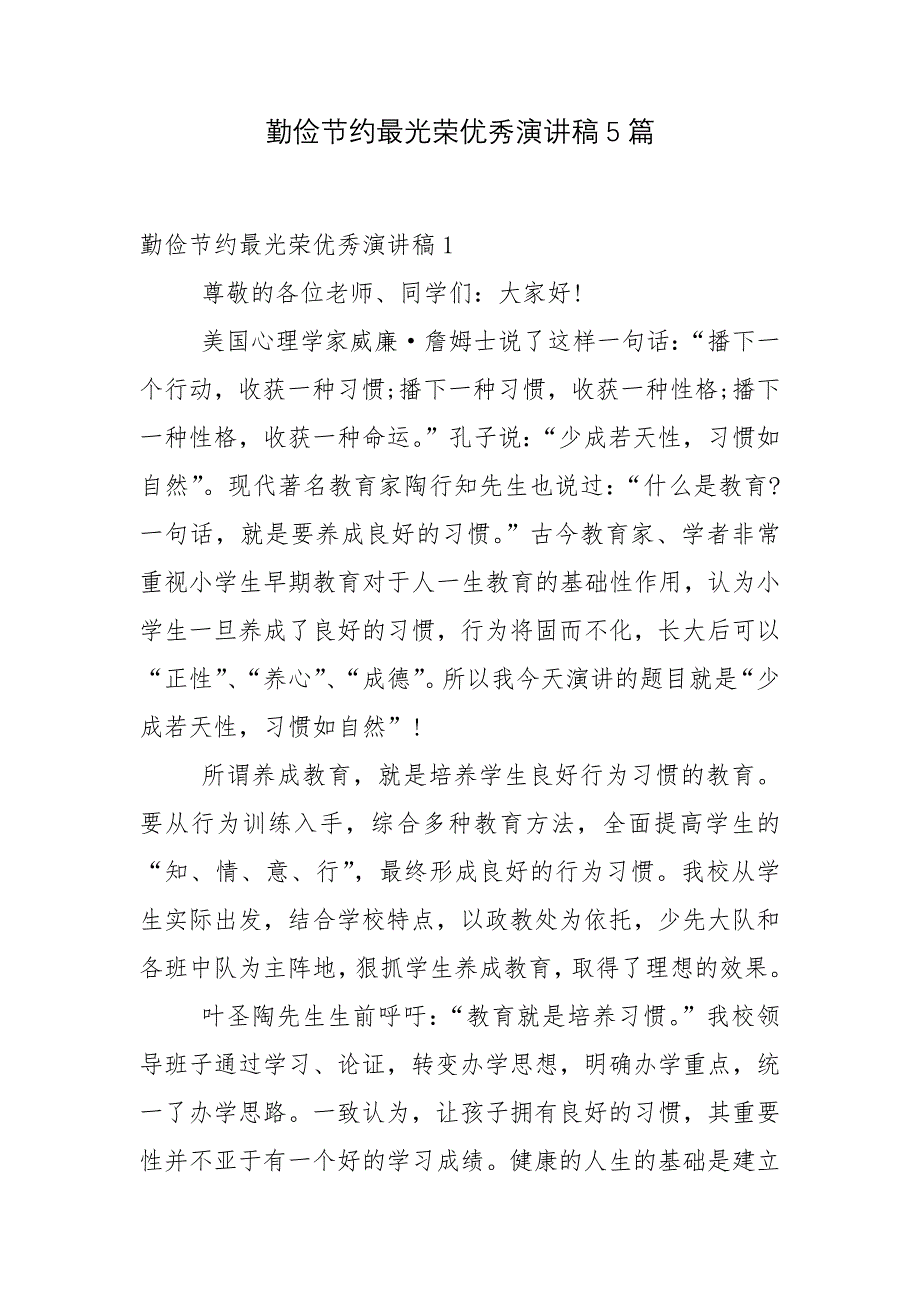 勤俭节约最光荣优秀演讲稿5篇
勤俭节约最光荣优秀演讲稿1
尊敬的各位老师、同学们：大家好!
美国心理学家威廉·詹姆士说了这样一句话：“播下一
个行动，收获一种习惯;播下一种习惯，收获一种性格;播下
一种性格，收获一种命运。”孔子说：“少成若天性，习惯如
自然”。现代著名教育家陶行知先生也说过：“什么是教育?
一句话，就是要养成良好的习惯。”古今教育家、学者非常
重视小学生早期教育对于人一生教育的基础性作用，认为小
学生一旦养成了良好的习惯，行为将固而不化，长大后可以
“正性”、“养心”、“成德”。所以我今天演讲的题目就是“少
成若天性，习惯如自然”!
所谓养成教育，就是培养学生良好行为习惯的教育。
要从行为训练入手，综合多种教育方法，全面提高学生的
“知、情、意、行”，最终形成良好的行为习惯。我校从学
生实际出发，结合学校特点，以政教处为依托，少先大队和
各班中队为主阵地，狠抓学生养成教育，取得了理想的效果。
叶圣陶先生生前呼吁：“教育就是培养习惯。”我校领
导班子通过学习、论证，转变办学思想，明确办学重点，统
一了办学思路。一致认为，让孩子拥有良好的习惯，其重要
性并不亚于有一个好的学习成绩。健康的人生的基础是建立